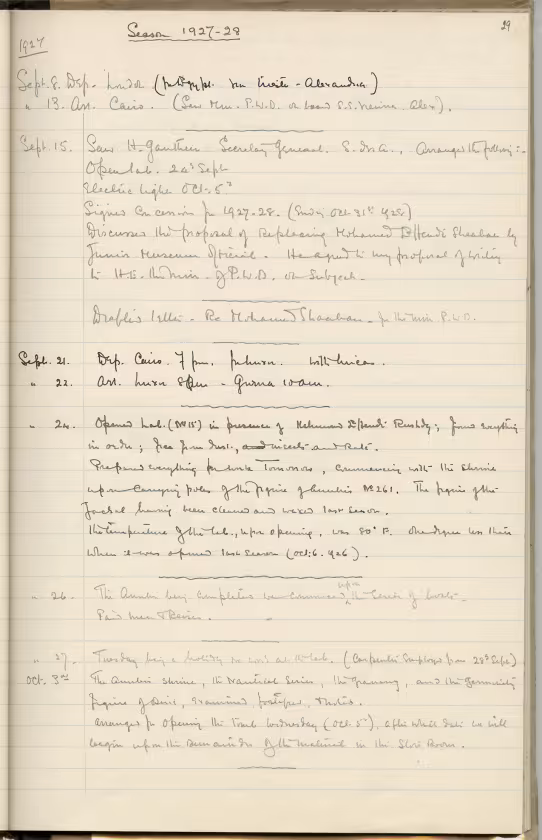 29
Season 1927-28
1927
Sept. 8. Dep. London (for Egypt. via Trieste - Alexandria)
" 13. Arr. Cairo. (Saw Min. P.W.D. on board S.S. Alex).
Sept. 15. Saw H. Gauthier Secretary General. S. des A., Arranged the following:-
Open Lab. 24th Sept
Electric light Oct. 5th
Signed Concession for 1927-28. (Ending Oct. 31st 1928)
Discussed the proposal of Replacing Mohamed Effendi Shaaban by
Junior Museum Official. He agreed to my proposal of writing
to H.E. the Min. of P.W.D. on subject.
Drafted letter - Re Mohamed Shaaban - for the Min. P.W.D.
Sept. 21. Dep. Cairo. 7 pm. for Luxor. with Lucas.
" 22. Arr. Luxor - Gurna 10 am.
" 24. Opened Lab. (No 15) in presence of Mahmud Effendi Rushdy; found everything
in order; free from dust, and insects and Rats.
Prepared everything for work Tomorrow, commencing with the shrine
upon carrying poles of the figure of Anubis No 261. The figure of the
Jackal having been cleaned and waxed last season.
The temperature of the Lab., upon opening, was 80° F. one degree less than
when it was opened last season (Oct. 6. 1926).
" 26. The Anubis being completed we commenced upon the series of boats.
Paid men & Reises.
" 27. Tuesday being a holiday no work at the Lab. (Carpenter employed from 28th Sept)
Oct. 3rd The Anubis shrine, the Nautical Series, the granary, and the germinating
figure of Osiris, examined,
arranged for opening the Tomb Wednesday (Oct. 5th), after which date we will
begin upon the remainder of the material in the Store Room.